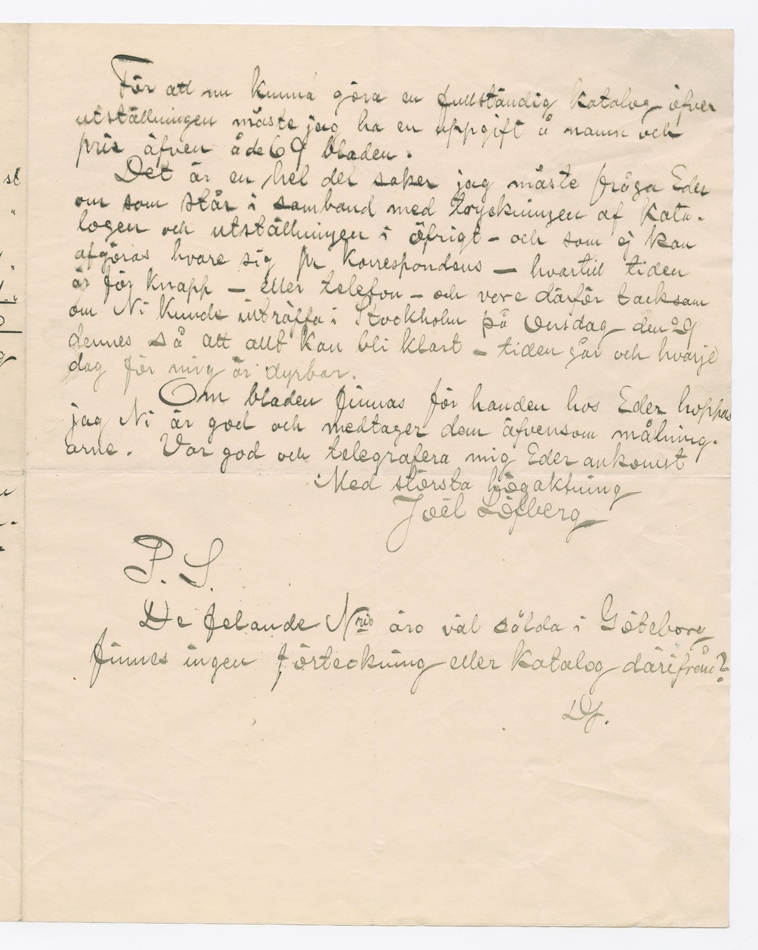 För att nu kunna göra en fullständig katalog öfver
utställningen måste jag ha en uppgift å namn och
pris äfven å de 69 bladen.
Det är en hel del saker jag måste fråga Eder
om som står i samband med tryckningen af kata-
logen och utställningen i öfrigt – och som ej kan
afgöras hvare sig pr korrespondens – hvartill tiden
är för knapp – eller telefon – och vore därför tacksam
om Ni kunde inträffa i Stockholm på Onsdag den 29
dennes så att allt kan bli klart – tiden går och hvarje
dag för mig är dyrbar.
Om bladen finnas för handen hos Eder hoppas
jag Ni är god och medtager dem äfvensom målning-
arne. Var god och telegrafera mig Eder ankomst
Med största högaktning
Joël Löfberg
P. S.
De felande Nris äro väl sålda i Göteborg
finnes ingen förteckning eller katalog därifrån?
Ds.